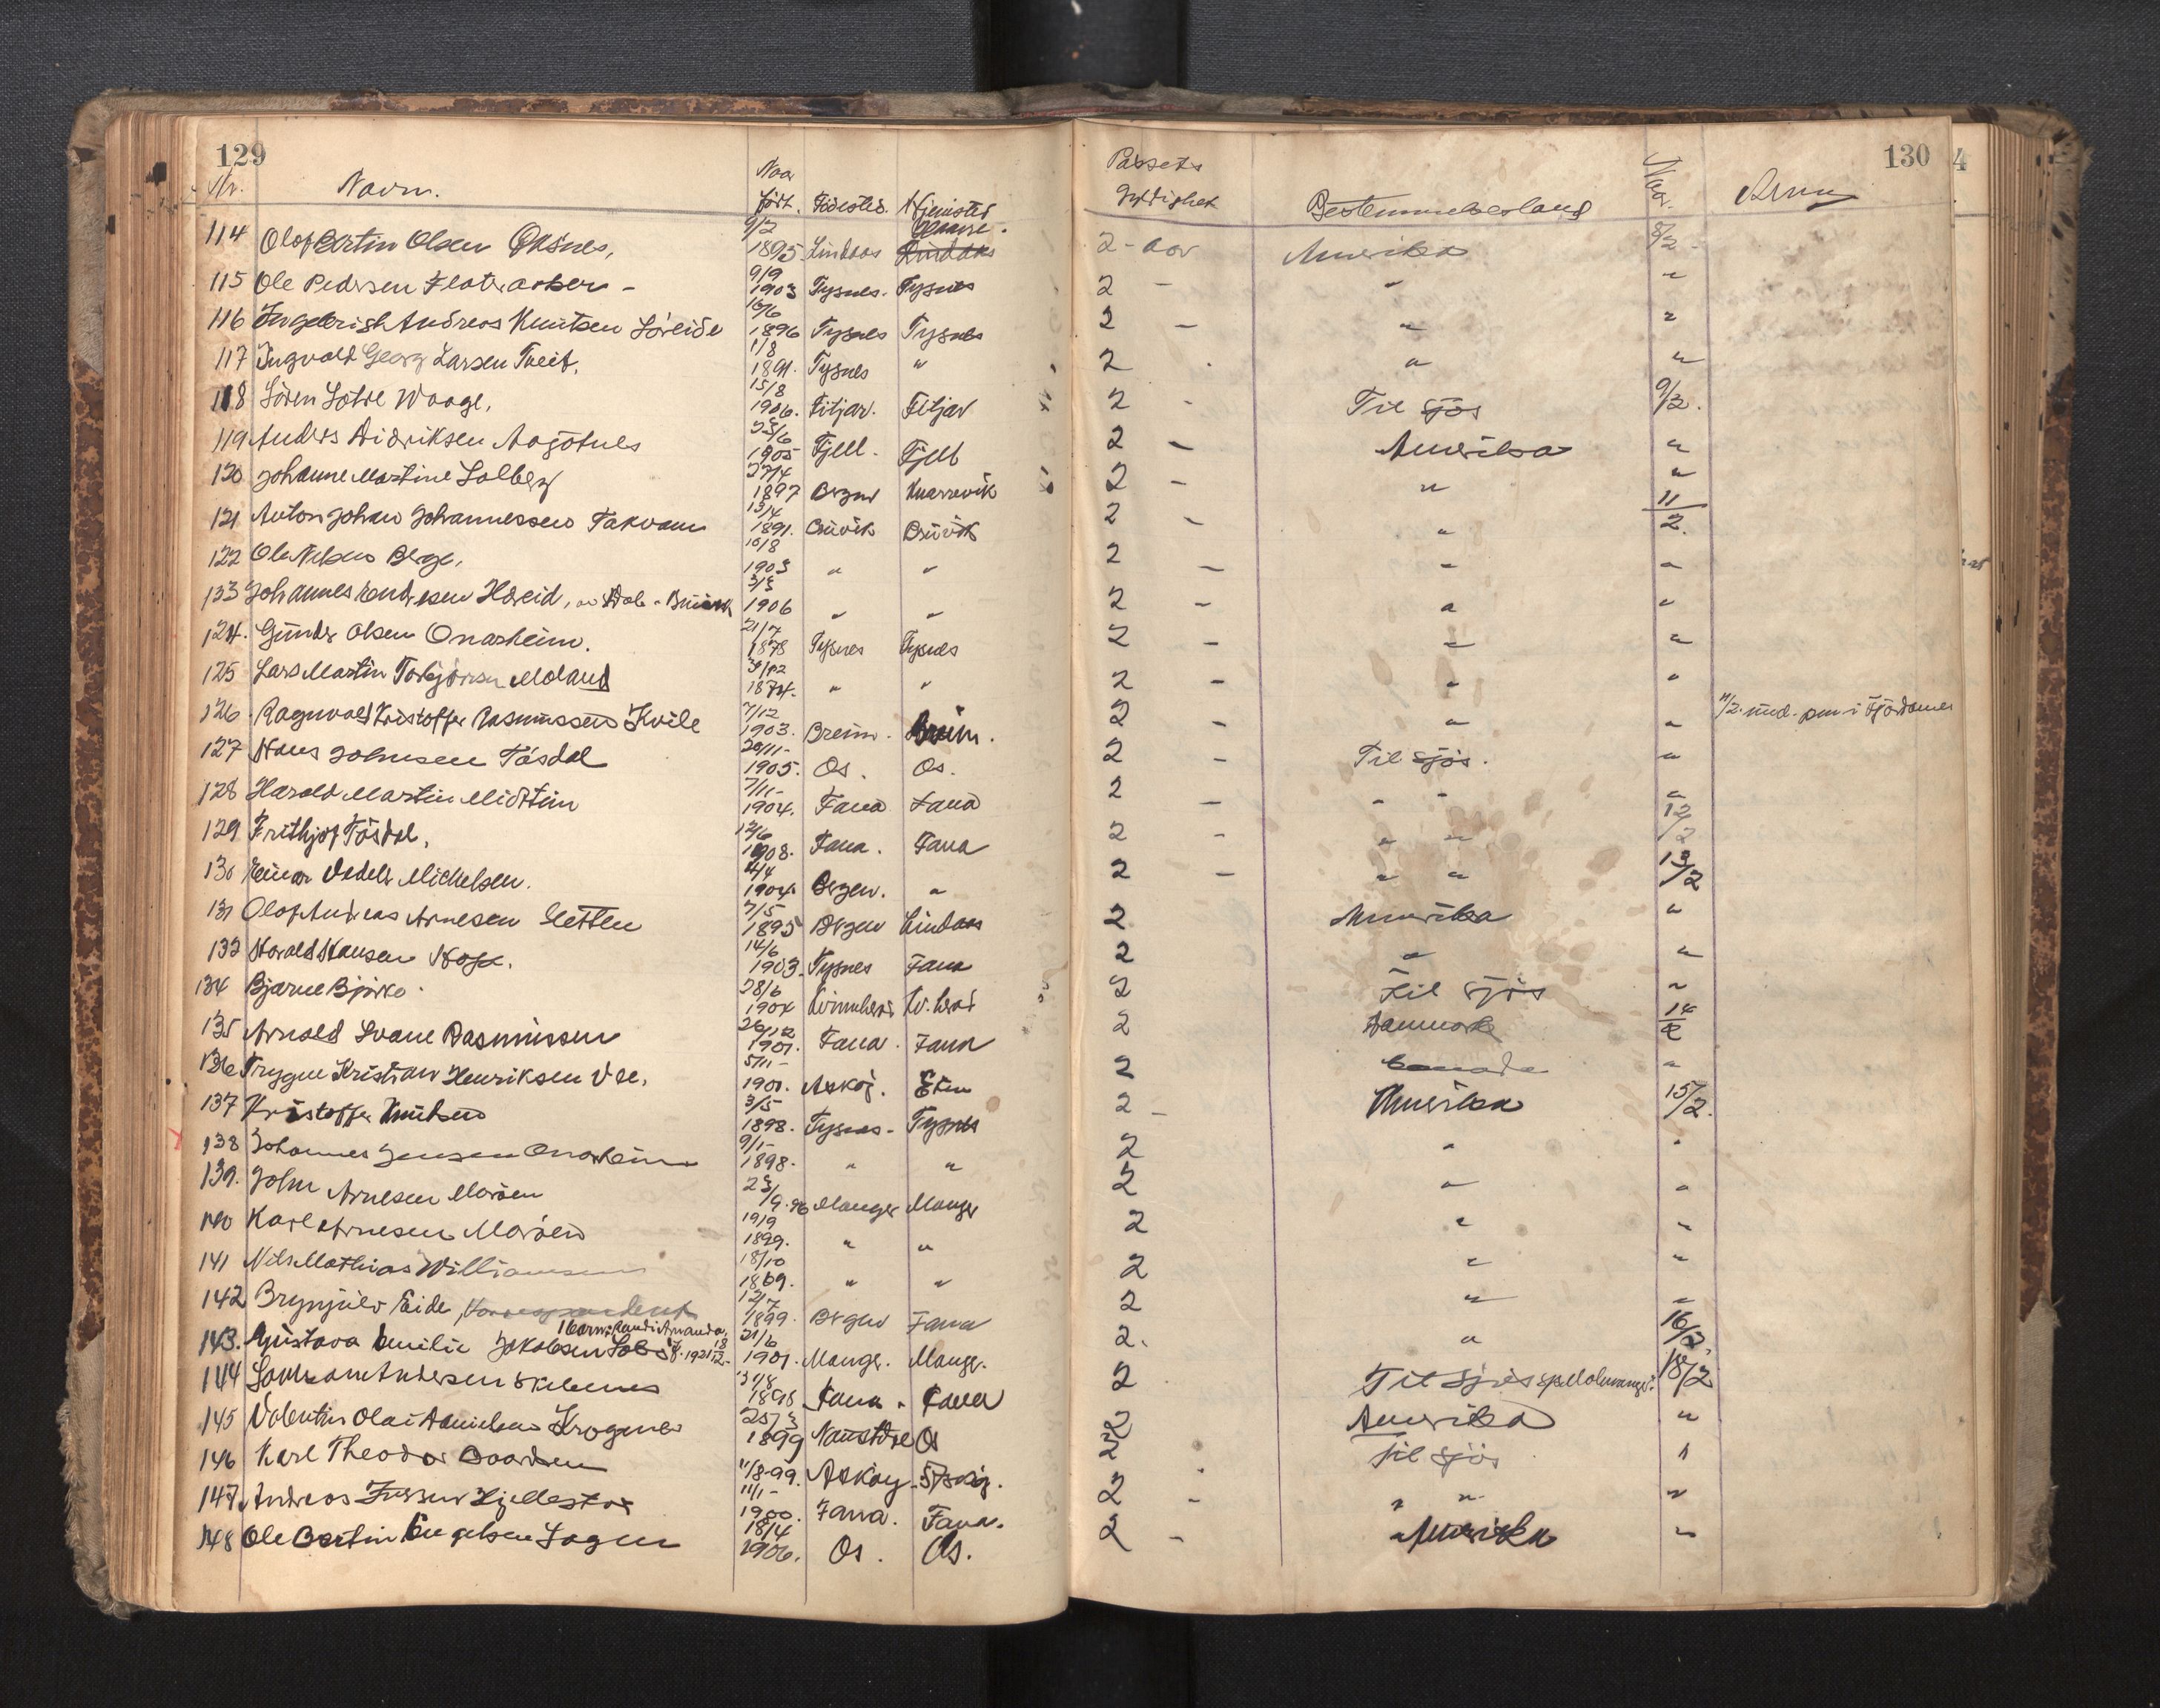 129
130
4
Nr. Navn. Naar född. Födested. Hjemsted Passets Gyldighet Bestemmelsesland Naar. Anm
114 Olaf Bertin Olsen 9/2 1895 Lindaas Lindaas 2 - aar Amerika 8/2 -
115 Ole Pedersen Flateraaker - 9/9 1903 Tysnes. Tysnes 2 - " "
116 Ingebrigt Andreas Knutsen Söreide 16/6 1896 Tysnes Tysnes 2 - " "
117 Ingvald Georg Larsen Tveit. 1/8 1891. Tysnes " 2 . " "
118 Sören Sötre Waage, 15/8 1906. Fitjar. Fitjar 2 - Til sjös 9/2.
119 Andres Didriksen Aagotnes 23/6 1905 Fjell. Fjell 2 - Amerika "
120 Johanne Martine Solberg 27/4 1897 Bergen Knarrevik 2 - " "
121 Anton Johan Johannessen Takvam 13/4 1891. Bruvik Bruvik 2 - " 11/2.
122 Ole Nilsen Berge, 16/8 1903 " " 2 - " "
133 Johannes Endresen Hareid, Dale - Bruvik 3/3 1906 " " 2 - " "
124. Gunder Olsen Onarheim. 21/7 1878 Tysnes Tysnes 2 - " "
125 Lars Martin Torbjörnsen Moland 31/12 1874. " " 2 - " "
126 Ragnvald Kristoffer Rasmussen Kvile 7/12 1903. Breim. Breim. 2 - " " 11/2. pm i Fjordames
127 Hans Johnsen Tösdal 20/11 - 1905. Os. Os. 2 - Til sjös. "
128 Harold Martin Midttun 7/11 - 1904. Fana Fana 2 - " " "
129 Frithjof Tösdal, 12/6 1908. Fana. Fana 2 - " " 12/2
130 Einar Vedeler Michelsen. 4/4 1904. Bergen. " 2 - " " 13/2
131 Olaf Andreas Arnesen Sletten 7/5 1895 Bergen Lindaas 2 Amerika "
133 Harald Hansen Hope. 14/6 1903. Tysnes Fana 2 " "
134 Bjarne Björko 28/6 1904 Kvinnherad Kv. herad 2 Til sjös "
135 Arnold Svane Rasmussen 26/12 1901. Fana. Fana 2 Danmark 14/2
136 Trygve Kristian Henriksen Vee. 5/11 - 1901. Asköj. Etne 2 Canada "
137 Kristoffer Knutsen 3/5 1898. Tysnes - Tysnes 2 - Amerika 15/2.
138 Johannes Jensen Onarheim 9/1 - 1898. " " 2 " "
139. John Arnesen Maröen 23/9.96 Manger Manger 2 " "
140 Karl Arnesen Maröen 19/9 1899. " " 2 " "
141 Nils Mathias Williamsen 18/10 1869. " " 2 " "
142 Brynjulv Eide, Korrespondent 12/7 1899. Bergen Fana 2 " "
1 barn: Randi Amanda, f. 18/12 - 1921
143. Gustava Emilie Jakobsen 21/6 1901. Manger. Manger. 2. " 16/2,
144 Andersen 31/8 1898 Fana. Fana 2 Til Sjös 18/2
145 Valentin Olai Danielsen Krognes 25/3 1899 Naustdal Os 2 Amerika "
146 Karl Theodor Baardsen 11/8 - 99. Askøy 2 Til sjös "
147 Andreas Iversen Hjellestad 11/1 - 1900. Fana. Fana. 2 - " " "
148 Ole Bertin Engelsen Lagen 18/4 1906. Os. Os. 2 - Amerika "